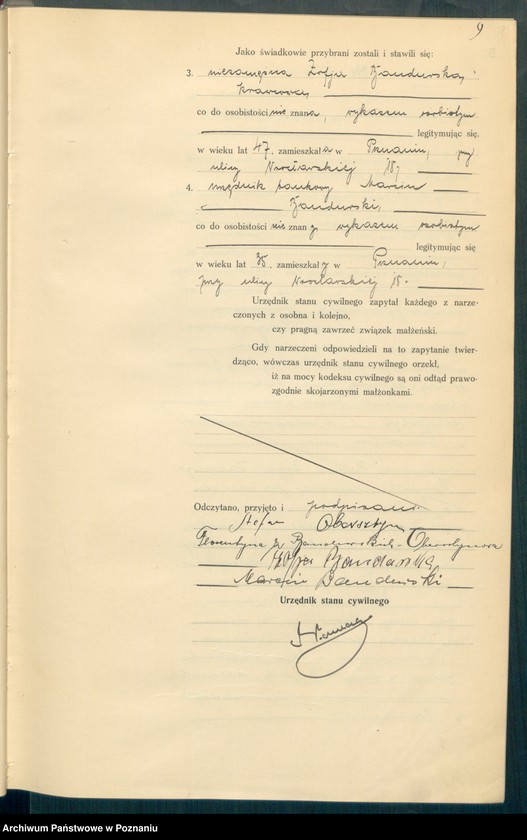 9
Jako świadkowie przybrani zostali i stawili się:
3. niezamężna Zofja Bandurska,
krawcowa,
co do osobistości nie znana, wykazem osobistym
legitymując się,
w wieku lat 47, zamieszkała w Poznaniu, przy
ulicy Wrocławskiej 15,
4. urzędnik bankowy Marcin
Bandurski,
co do osobistości nie znany wykazem osobistym
legitymując się
w wieku lat 35, zamieszkały w Poznaniu,
przy ulicy Wrocławskiej 15.
Urzędnik stanu cywilnego zapytał każdego z narze-
czonych z osobna i kolejno,
czy pragną zawrzeć związek małżeński.
Gdy narzeczeni odpowiedzieli na to zapytanie twier-
dząco, wówczas urzędnik stanu cywilnego orzekł,
iż na mocy kodeksu cywilnego są oni odtąd prawo-
zgodnie skojarzonymi małżonkami.
Odczytano, przyjęto i podpisano
Stefan Olsztyn
Florentyna z Bandurskich
Zofja Bandurska
Marcin Bandurski
Urzędnik stanu cywilnego
Archiwum Państwowe w Poznaniu